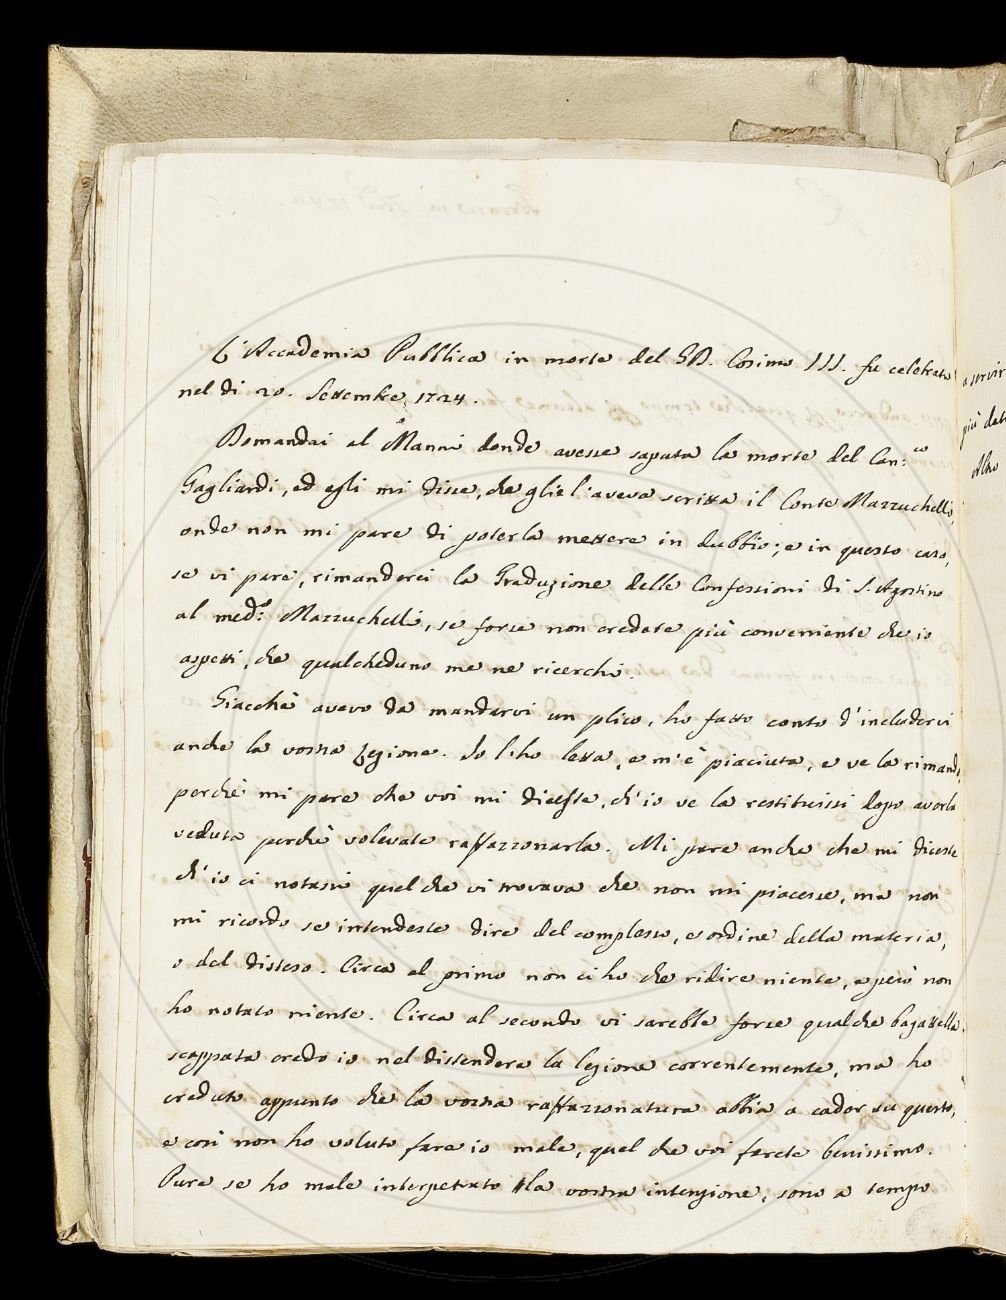 L'Accademia Pubblica in morte del GD. Cosimo III. fu celebrata
nel di 20. Settembre 1724.
Domandai al Manni donde avesse saputa la morte del Can.co
Gagliardi, ed egli mi disse, che glie l'aveva scritta il Conte Mazzuchelli,
onde non mi pare di poterla mettere in dubbio; e in questo caso,
se vi pare, rimanderei la Traduzione delle Confessioni di S. Agostino
al med.o Mazzuchelli, se forse non credete più conveniente che io
aspetti, che qualcheduno me ne ricerchi.
Giacchè avevo da mandarvi un plico, ho fatto conto d'includervi
anche la vostra Lezione. Io l'ho letta, e m'è piaciuta, e ve la rimando,
perchè mi pare che voi mi diceste, ch'io ve la restituissi dopo averla
veduta perchè volevate raffazzonarla. Mi pare anche che mi diceste
ch'io ci notassi quel che vi trovava che non mi piacesse, ma non
mi ricordo se intendeste dire del complesso, e ordine della materia,
o del disteso. Circa al primo non ci ho che ridire niente, e però non
ho notato niente. Circa al secondo vi sarebbe forse qualche bagattella
scappata credo io nel distendere la lezione correntemente, ma ho
creduto appunto che la vostra raffazzonatura abbia a cader su questo,
e così non ho voluto fare io male, quel che voi farete benissimo.
Pure se ho male interpetrato la vostra intenzione, sono a tempo
a servir
più